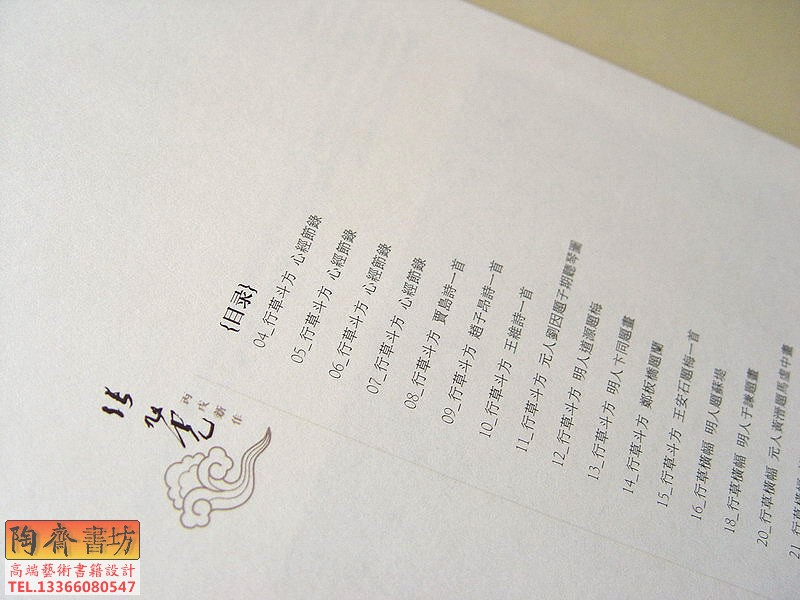 {目录}
04_行草斗方 心經節錄
05_行草斗方 心經節錄
06_行草斗方 心經節錄
07_行草斗方 心經節錄
08_行草斗方 賈島詩一首
09_行草斗方 趙子昂詩一首
10_行草斗方 王維詩一首
11_行草斗方 元人劉因題子期聽琴圖
12_行草斗方 明人道源題梅
13_行草斗方 明人卞同題畫
14_行草斗方 鄭板橋題蘭
15_行草斗方 王安石題梅一首
16_行草橫幅 明人題蘇堤
18_行草橫幅 明人于謙題畫
20_行草橫幅 元人黃溍題馬虛中畫
21_行草橫幅
丙戌新作
陶齋書坊
高端藝術書籍設計
TEL.13366080547